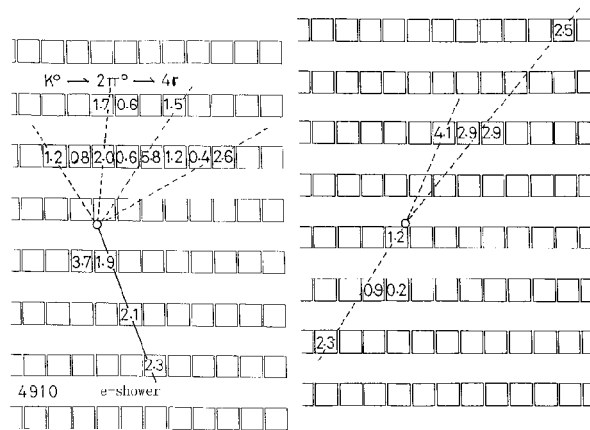 K⁰ → 2π⁰ → 4r
1.7 0.6 1.5
1.2 0.8 2.0 0.6 5.8 1.2 0.4 2.6
3.7 1.9
2.1
2.3
4910 e-shower
2.5
4.1 2.9 2.9
1.2
0.9 0.2
2.3